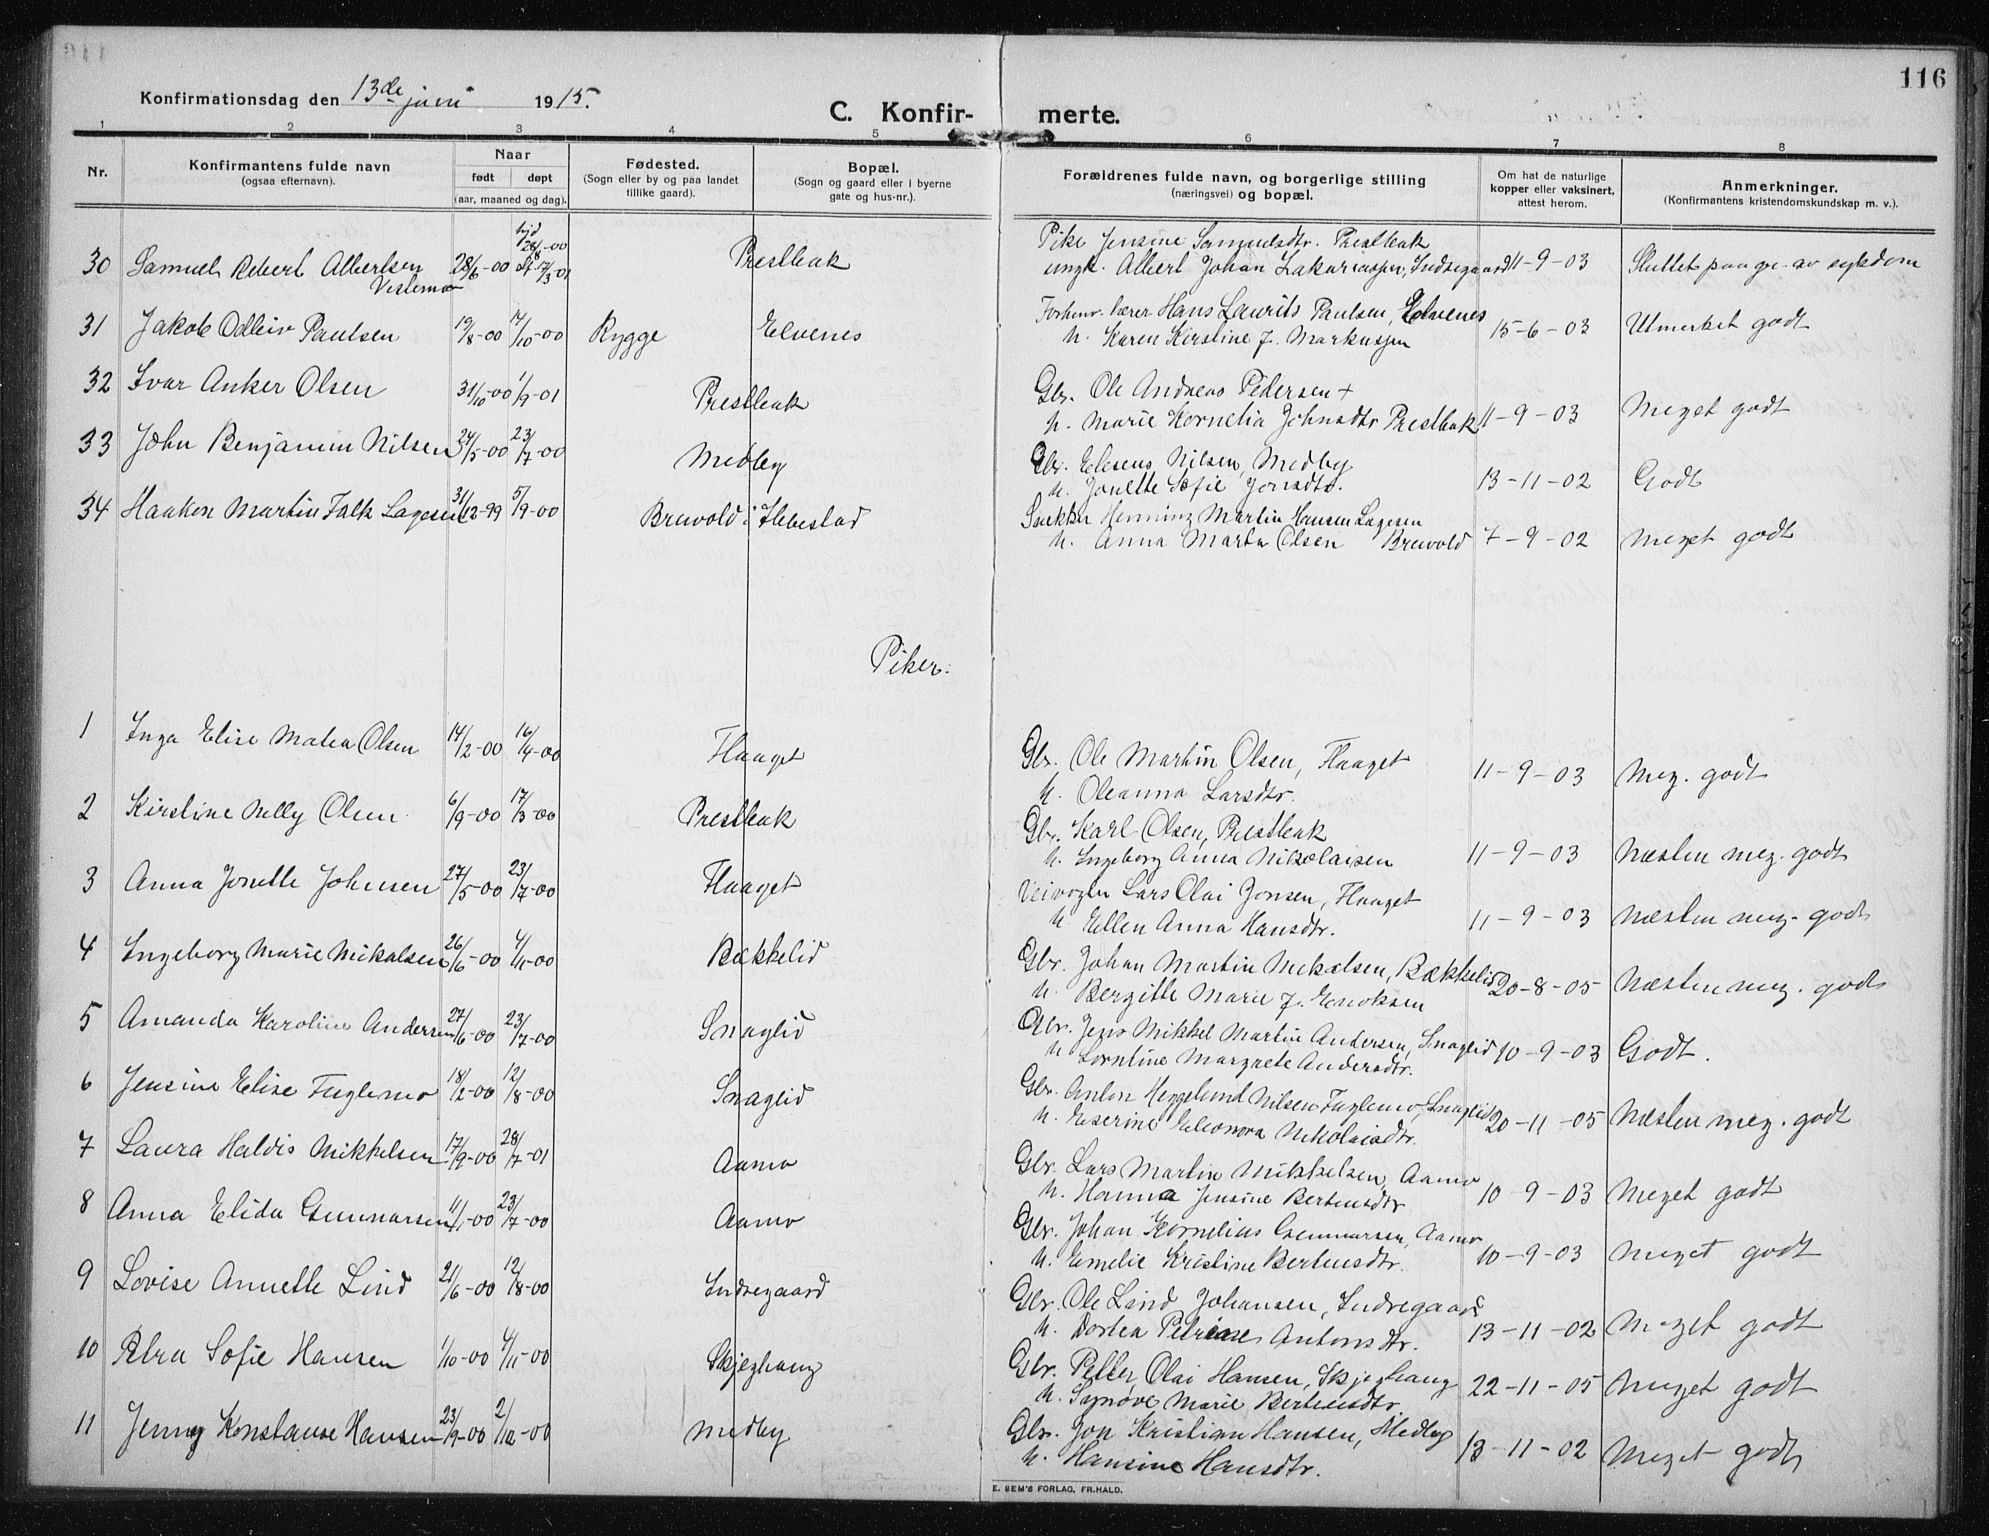 116
Konfirmationsdag den 13de juni 1915.
C. Konfir- merte.
1 2 3 4 5 6 7 8
Nr. Konfirmantens fulde navn (ogsaa efternavn). Naar født døpt (aar, maaned og dag). Fødested. (Sogn eller by og paa landet tillike gaard). Bopæl. (Sogn og gaard eller i byerne gate og hus-nr.). Forældrenes fulde navn, og borgerlige stilling (næringsvei) og bopæl. Om hat de naturlige kopper eller vaksinert, attest herom. Anmerkninger. (Konfirmantens kristendomskundskap m. v.).
30 Samuel Robert Albertsen Vestermo 28/6-00 hjd 28/6-00 St. 17/3-01 Prestbak Pike Jensine Samuelsdtr. Prestbak
ungk. Albert Johan Zakariasen, Indregaard 11-9-03 Sluttet paa gr. av sykdom
31 Jakob Odleiv Paulsen 19/8-00 17/10-00 Rygge Elvenes Forhenv. lærer Hans Laurits Paulsen, Elvenes
h. Karen Kirstine f. Markussen 15-6-03 Utmerket godt
32 Ivar Anker Olsen 31/10-00 1/9-01 Prestbak Gbr. Ole Andreas Pedersen +
h. Marie Kornelia Johnsdtr Prestbak 11-9-03 Meget godt
33 John Benjamin Nilsen 24/5-00 23/7-00 Medby Gbr. Eleseus Nilsen, Medby
h. Jonette Sofie Jonsdtr. 13-11-02 Godt
34 Haakon Martin Falk Lagesen 31/12-99 5/9-00 Breivold i Ibbestad Snekker Henning Martin Hansen Lagesen
h. Anna Marta Olsen Breivold 7-9-02 Meget godt
Piker.
1 Inga Elise Matea Olsen 14/2-00 16/4-00 Flaaget Gbr. Ole Martin Olsen, Flaaget
h. Oleanna Larsdtr. 11-9-03 Meg. godt
2 Kirstine Nelly Olsen 6/9-00 17/3-00 Prestbak Gbr. Karl Olsen, Prestbak
h. Ingeborg Anna Nikolaisen 11-9-03 Næsten meg. godt
3 Anna Jonette Johnsen 27/5-00 23/7-00 Flaaget Veivogter Lars Olai Jonsen, Flaaget
h. Ellen Anna Hansdtr. 11-9-03 Næsten meg. godt
4 Ingeborg Marie Mikalsen 26/6-00 4/11-00 Bækkelid Gbr. Johan Martin Mikalsen, Bækkelid
h. Bergitte Marie f. Enoksen 20-8-05 Næsten meg. godt
5 Amanda Karoline Andersen 27/6-00 23/7-00 Snaglid Gbr. Jens Mikkel Martin Andersen, Snaglid
h. Lorntine Margrete Andersdtr. 10-9-03 Godt.
6 Jensine Elise Fuglemo 18/2-00 12/8-00 Snaglid Gbr. Anton Heggelund Nilsen Fuglemo, Snaglid
h. Eserine Eleonora Nikolaisdtr. 20-11-05 Næsten meg. godt
7 Laura Haldis Mikkelsen 17/9-00 28/7-01 Aamo Gbr. Lars Martin Mikkelsen, Aamo
h. Hanna Jensine Bertensdtr 10-9-03 Meget godt
8 Anna Elida Gunnarsen 11/1-00 23/7-00 Aamo Gbr. Johan Kornelius Gunnarsen, Aamo
h. Emelie Kristine Bertensdtr. 10-9-03 Meget godt
9 Lovise Annette Lind 21/6-00 12/8-00 Indregaard Gbr. Ole Lind Johansen, Indregaard
h. Dortea Petrine Antonsdtr. 13-11-02 Meget godt
10 Petra Sofie Hansen 1/10-00 4/11-00 Skjeghaug Gbr. Petter Olai Hansen, Skjeghaug
h. Synøve Marie Bertensdtr. 22-11-05 Meget godt
11 Jenny Konstanse Hansen 23/9-00 2/12-00 Medby Gbr. Jon Kristian Hansen, Medby
h. Hansine Hansdtr. 13-11-02 Meget godt
E. SEM'S FORLAG, FR.HALD.